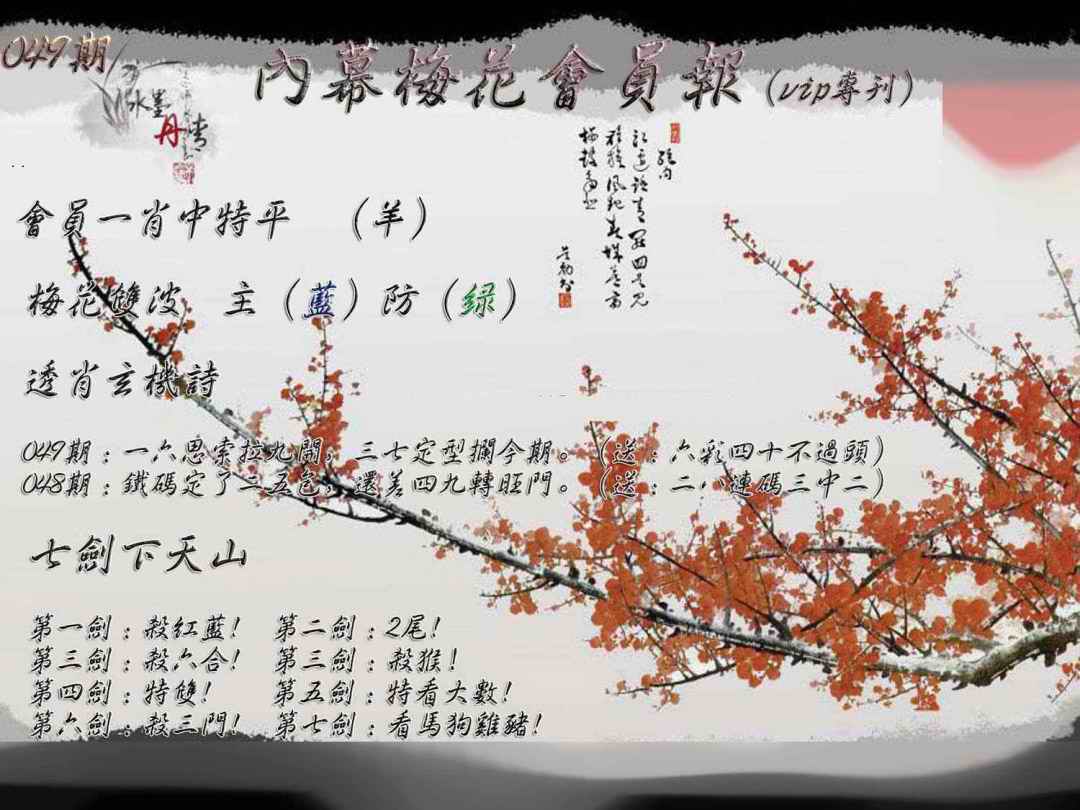 049期
內幕梅花會員報(vip專刊)
水墨
丹青
會員一肖中特平 (羊)
梅花雙波 主(藍)防(绿)
透肖玄機詩
049期:一六思索拉九開,三七定型攔今期。(送:六彩四十不過頭)
048期:鐵碼定了二五包,還差四九轉旺門。(送:二八連碼三中二)
七劍下天山
第一劍:殺紅藍! 第二劍:2尾!
第三劍:殺六合! 第三劍:殺猴!
第四劍:特雙! 第五劍:特看大數!
第六劍:殺三門! 第七劍:看馬狗雞豬!